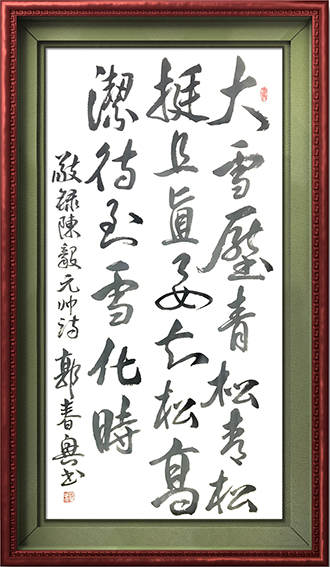 大雪壓青松青松
挺且直要知松高
潔待到雪化時
敬錄陳毅元帥詩 郭春興書